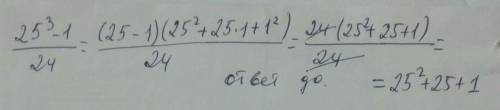 (25³-1)/24 = ((25-1)(25²+25·1+1²))/24 = (24·(25²+25+1))/24 =
ответ до. = 25²+25+1